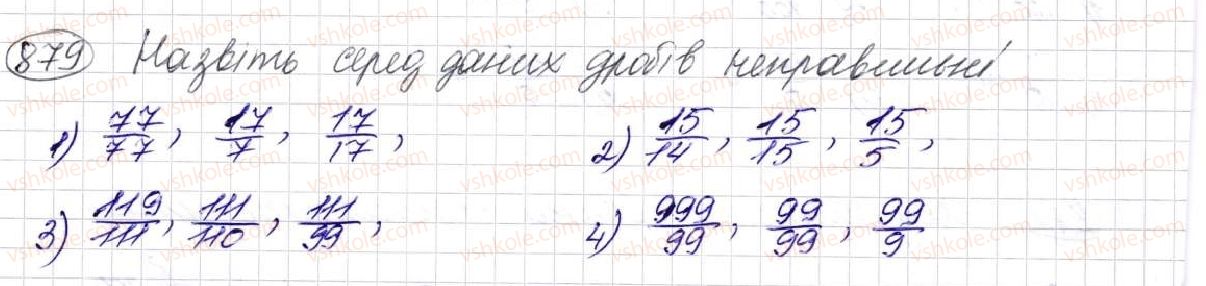 879 Назвіть серед даних дробів неправильні
1) 77/77, 17/7, 17/17, 2) 15/14, 15/15, 15/5,
3) 119/111, 111/110, 111/99, 4) 999/99, 99/99, 99/9